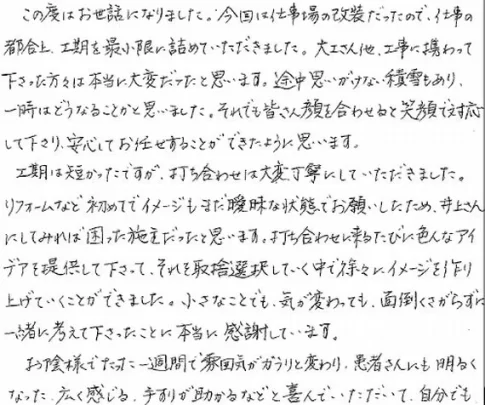 この度はお世話になりました。今回は仕事場の改装だったので、仕事の
都合上、工期を最小限に詰めていただきました。大工さん他、工事に携わって
下さった方々は本当に大変だったと思います。途中思いがけない積雪もあり、
一時はどうなることかと思いました。それでも皆さん顔を合わせると笑顔で対応
して下さり、安心してお任せすることができたように思います。
工期は短かったですが、打ち合わせは大変丁寧にしていただきました。
リフォームなど初めてでイメージもまだ曖昧な状態でお願いしたため、井上さん
にしてみれば困った施主だったと思います。打ち合わせに来るたびに色んなアイ
デアを提供して下さって、それを取捨選択していく中で徐々にイメージを作り
上げていくことができました。小さなことでも、気が変わっても、面倒くさがらずに
一緒に考えて下さったことに本当に感謝しています。
お陰様でたった一週間で雰囲気がガラリと変わり、患者さんにも明るく
なった、広く感じる、手すりが助かるなどと喜んでいただいて、自分でも